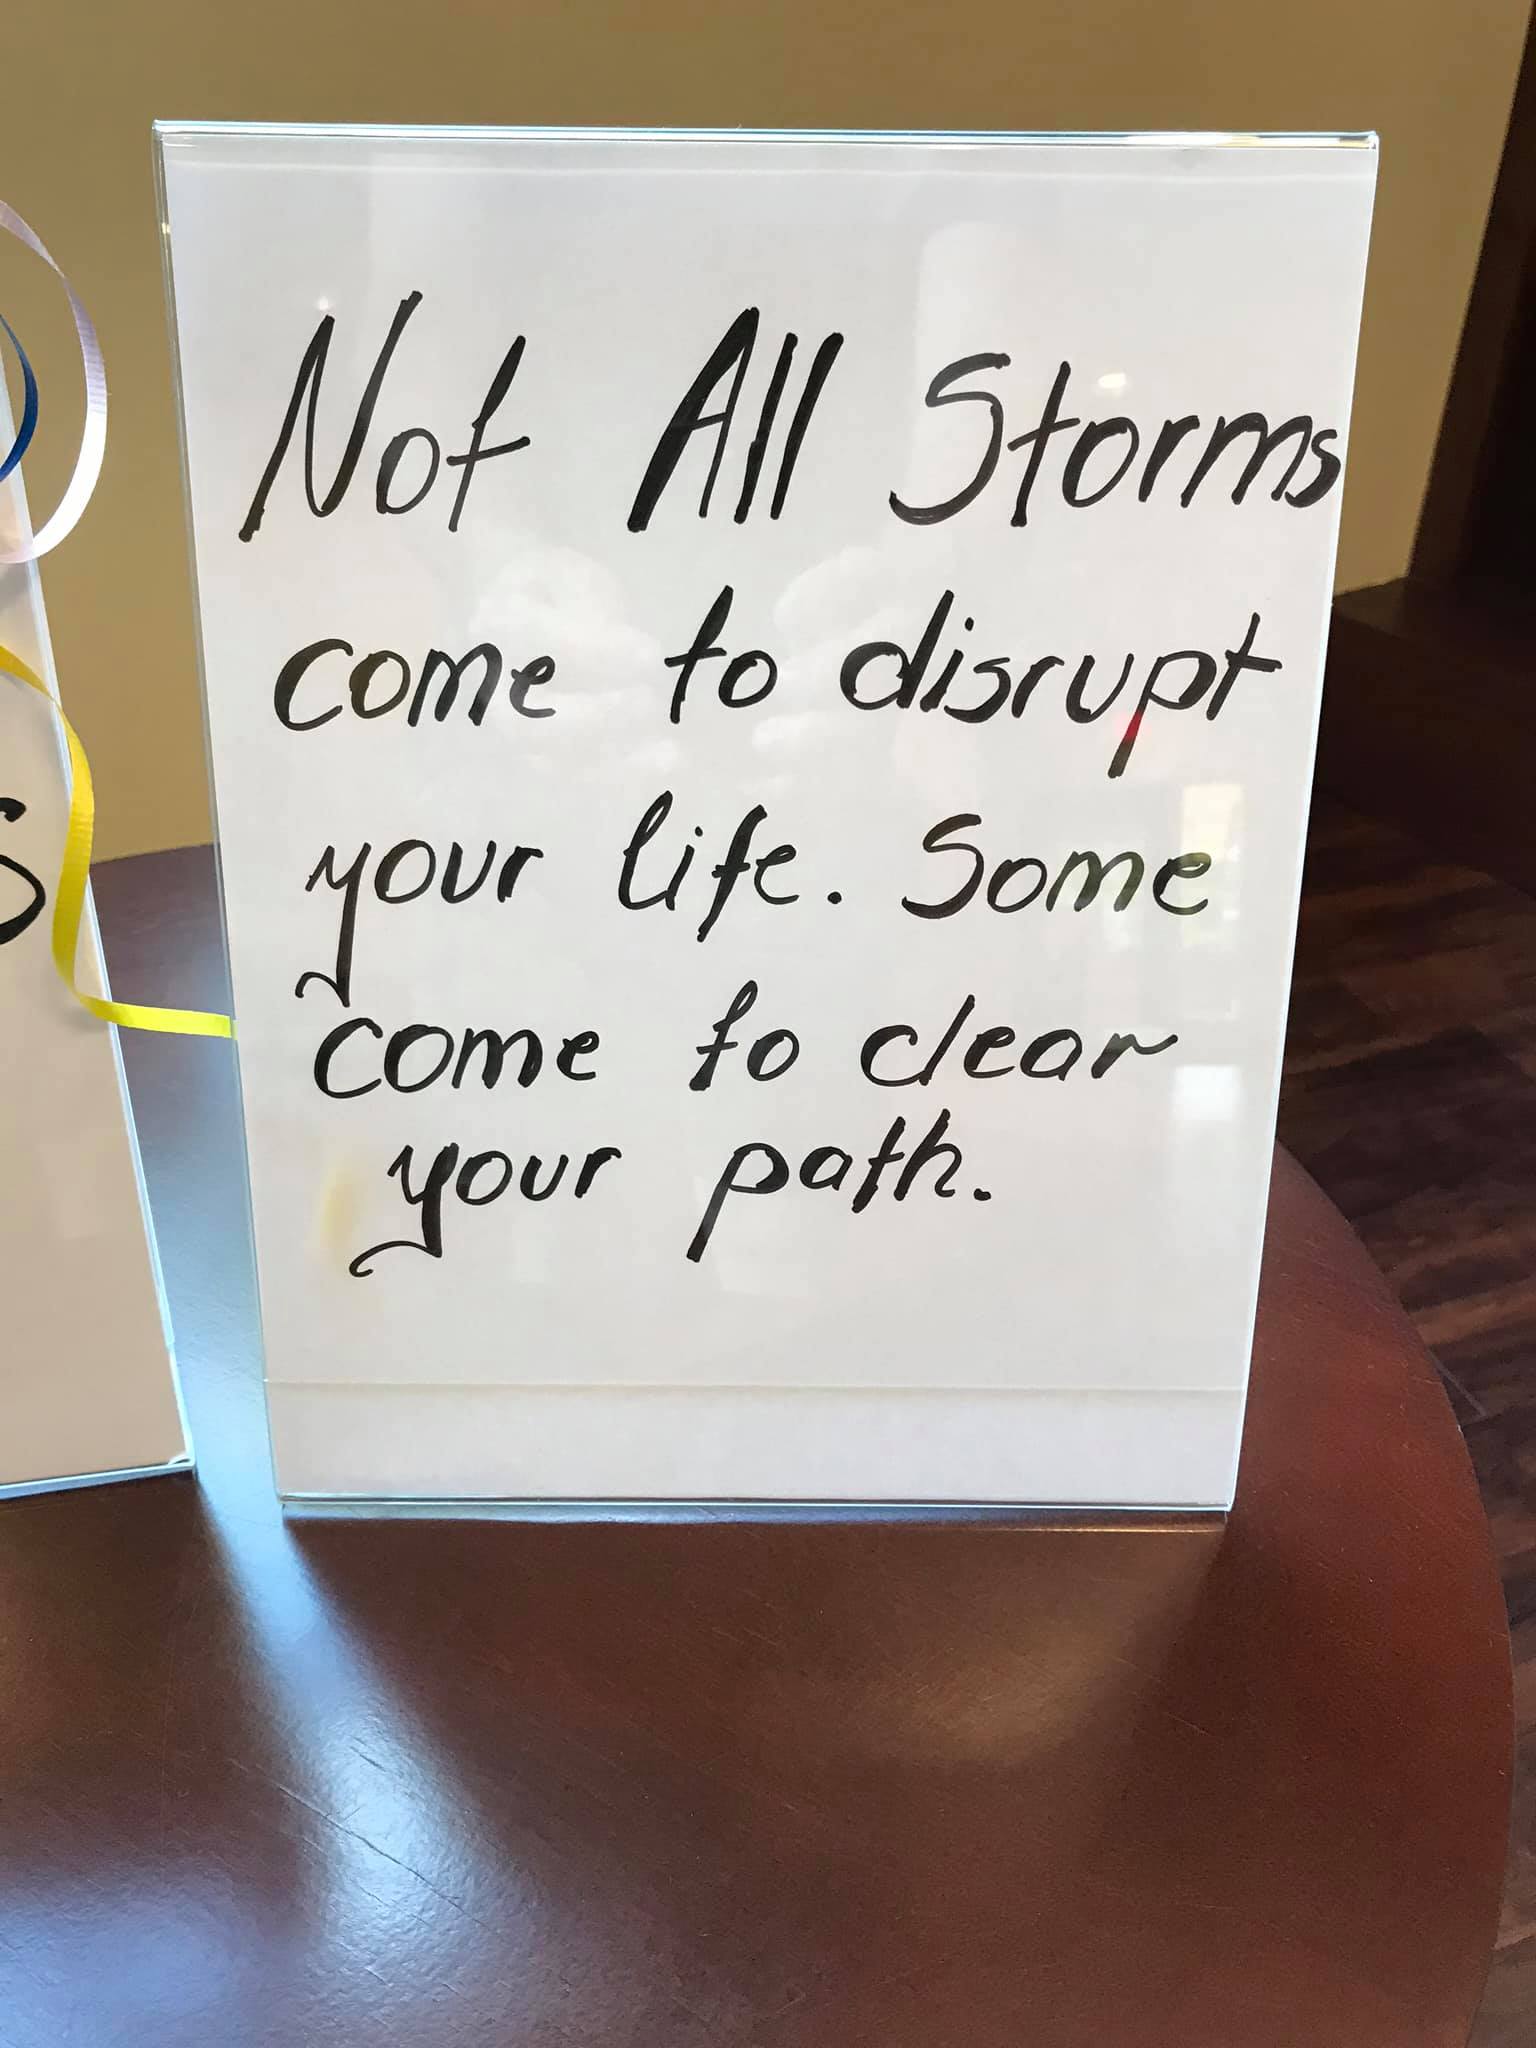 Not All Storms
come to disrupt
your life. Some
come to clear
your path.